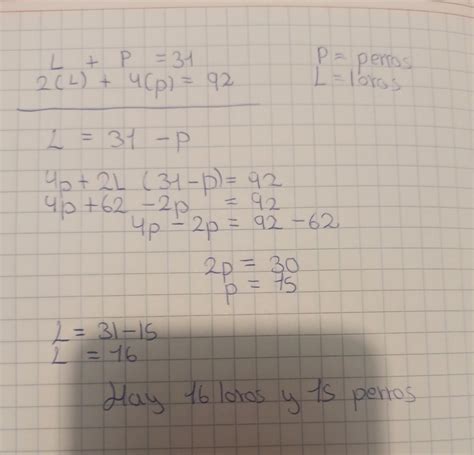 L + P = 31
2(L) + 4(p) = 92
P = perros
L = loros
L = 31 - p
4p + 2L (31 - p) = 92
4p + 62 - 2p = 92
4p - 2p = 92 - 62
2p = 30
p = 15
L = 31 - 15
L = 16
Hay 16 loros y 15 perros